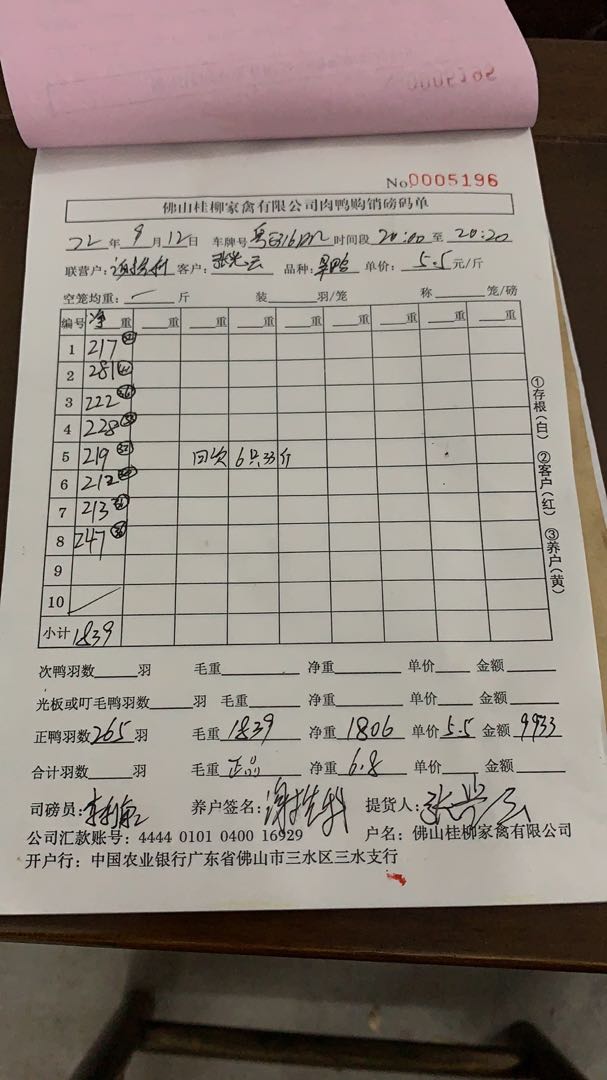 No 0005196
佛山桂柳家禽有限公司肉鸭购销磅码单
22年9月12日 车牌号 时间段 20:00 至 20:20
联营户: 客户: 品种: 单价: 5.5 元/斤
空笼均重: 斤 装 羽/笼 称 笼/磅
编号 净重 重 重 重 重 重 重 重 重
1 217
2 281
3 222
4 228
5 219 回次 6只33斤
6 212
7 213
8 247
9
10
小计 1839
①存根(白) ②客户(红) ③养户(黄)
次鸭羽数 羽 毛重 净重 单价 金额
光板或叮毛鸭羽数 羽 毛重 净重 单价 金额
正鸭羽数 265 羽 毛重 1839 净重 1806 单价 5.5 金额 9933
合计羽数 羽 毛重 正品 净重 6.8 单价 金额
司磅员: 养户签名: 提货人:
公司汇款账号: 4444 0101 0400 16929 户名: 佛山桂柳家禽有限公司
开户行: 中国农业银行广东省佛山市三水区三水支行